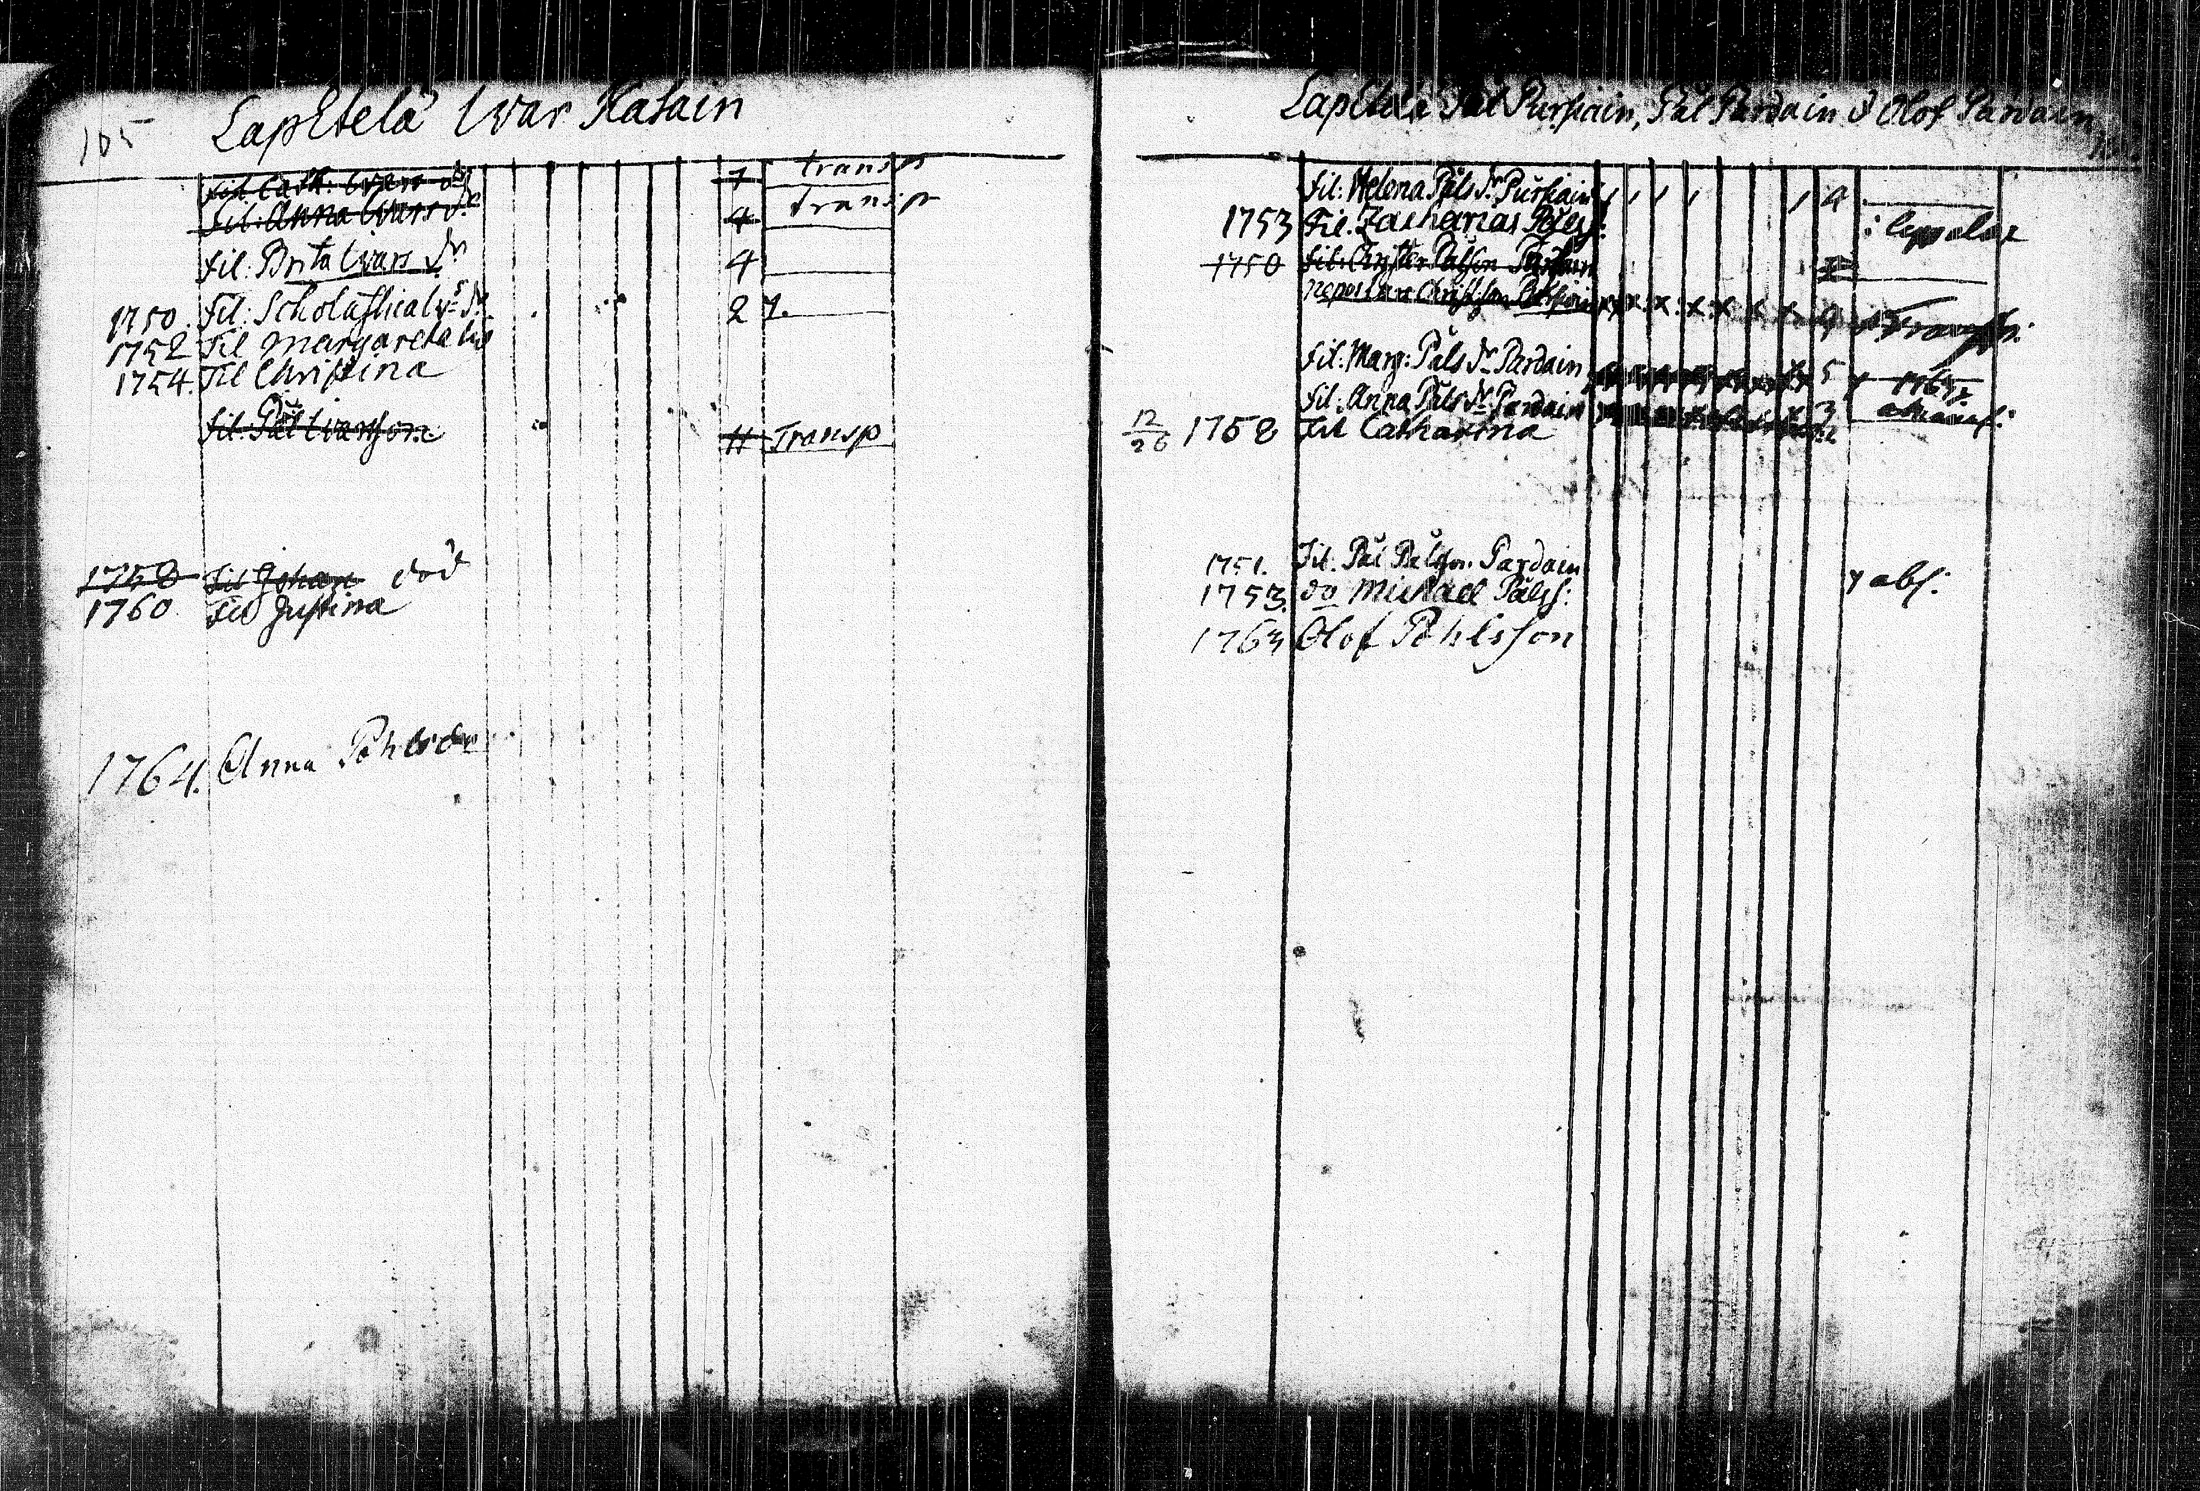 165
LapEtelä Ivar Hatain
fil. Cath: Ivars dr 7 transp
fil: Anna Ivars dr 4 transp
fil: Brita Ivars dr 4
1750. fil: Scholastica Iv=s dr. 2 7.
1752 Fil Margareta
1754. Fil Christina
fil: Pål Ivarsson 11 Transp
1758 Fil Johan död
1760 Fil Justina
1764. Anna Påhlsdr
LapEtelä Pål Purhain, Pål Pardain & Olof Pardain
fil: Helena Påls dr Purhain 9
1753 Fil. Zacharias Pålss:
1750 fil: Christer Pålson Purhain
nepos Christsson x x x x x x 9 Transp:
fil: Marg: Påls dr Pardain 5
fil: Anna Påls dr Pardain
12/26 1758 Fil Catharina
1751. Fil. Pål Pålson Pardain
1753. do Michael Pålss: abs:
1763 Olof Påhlsson